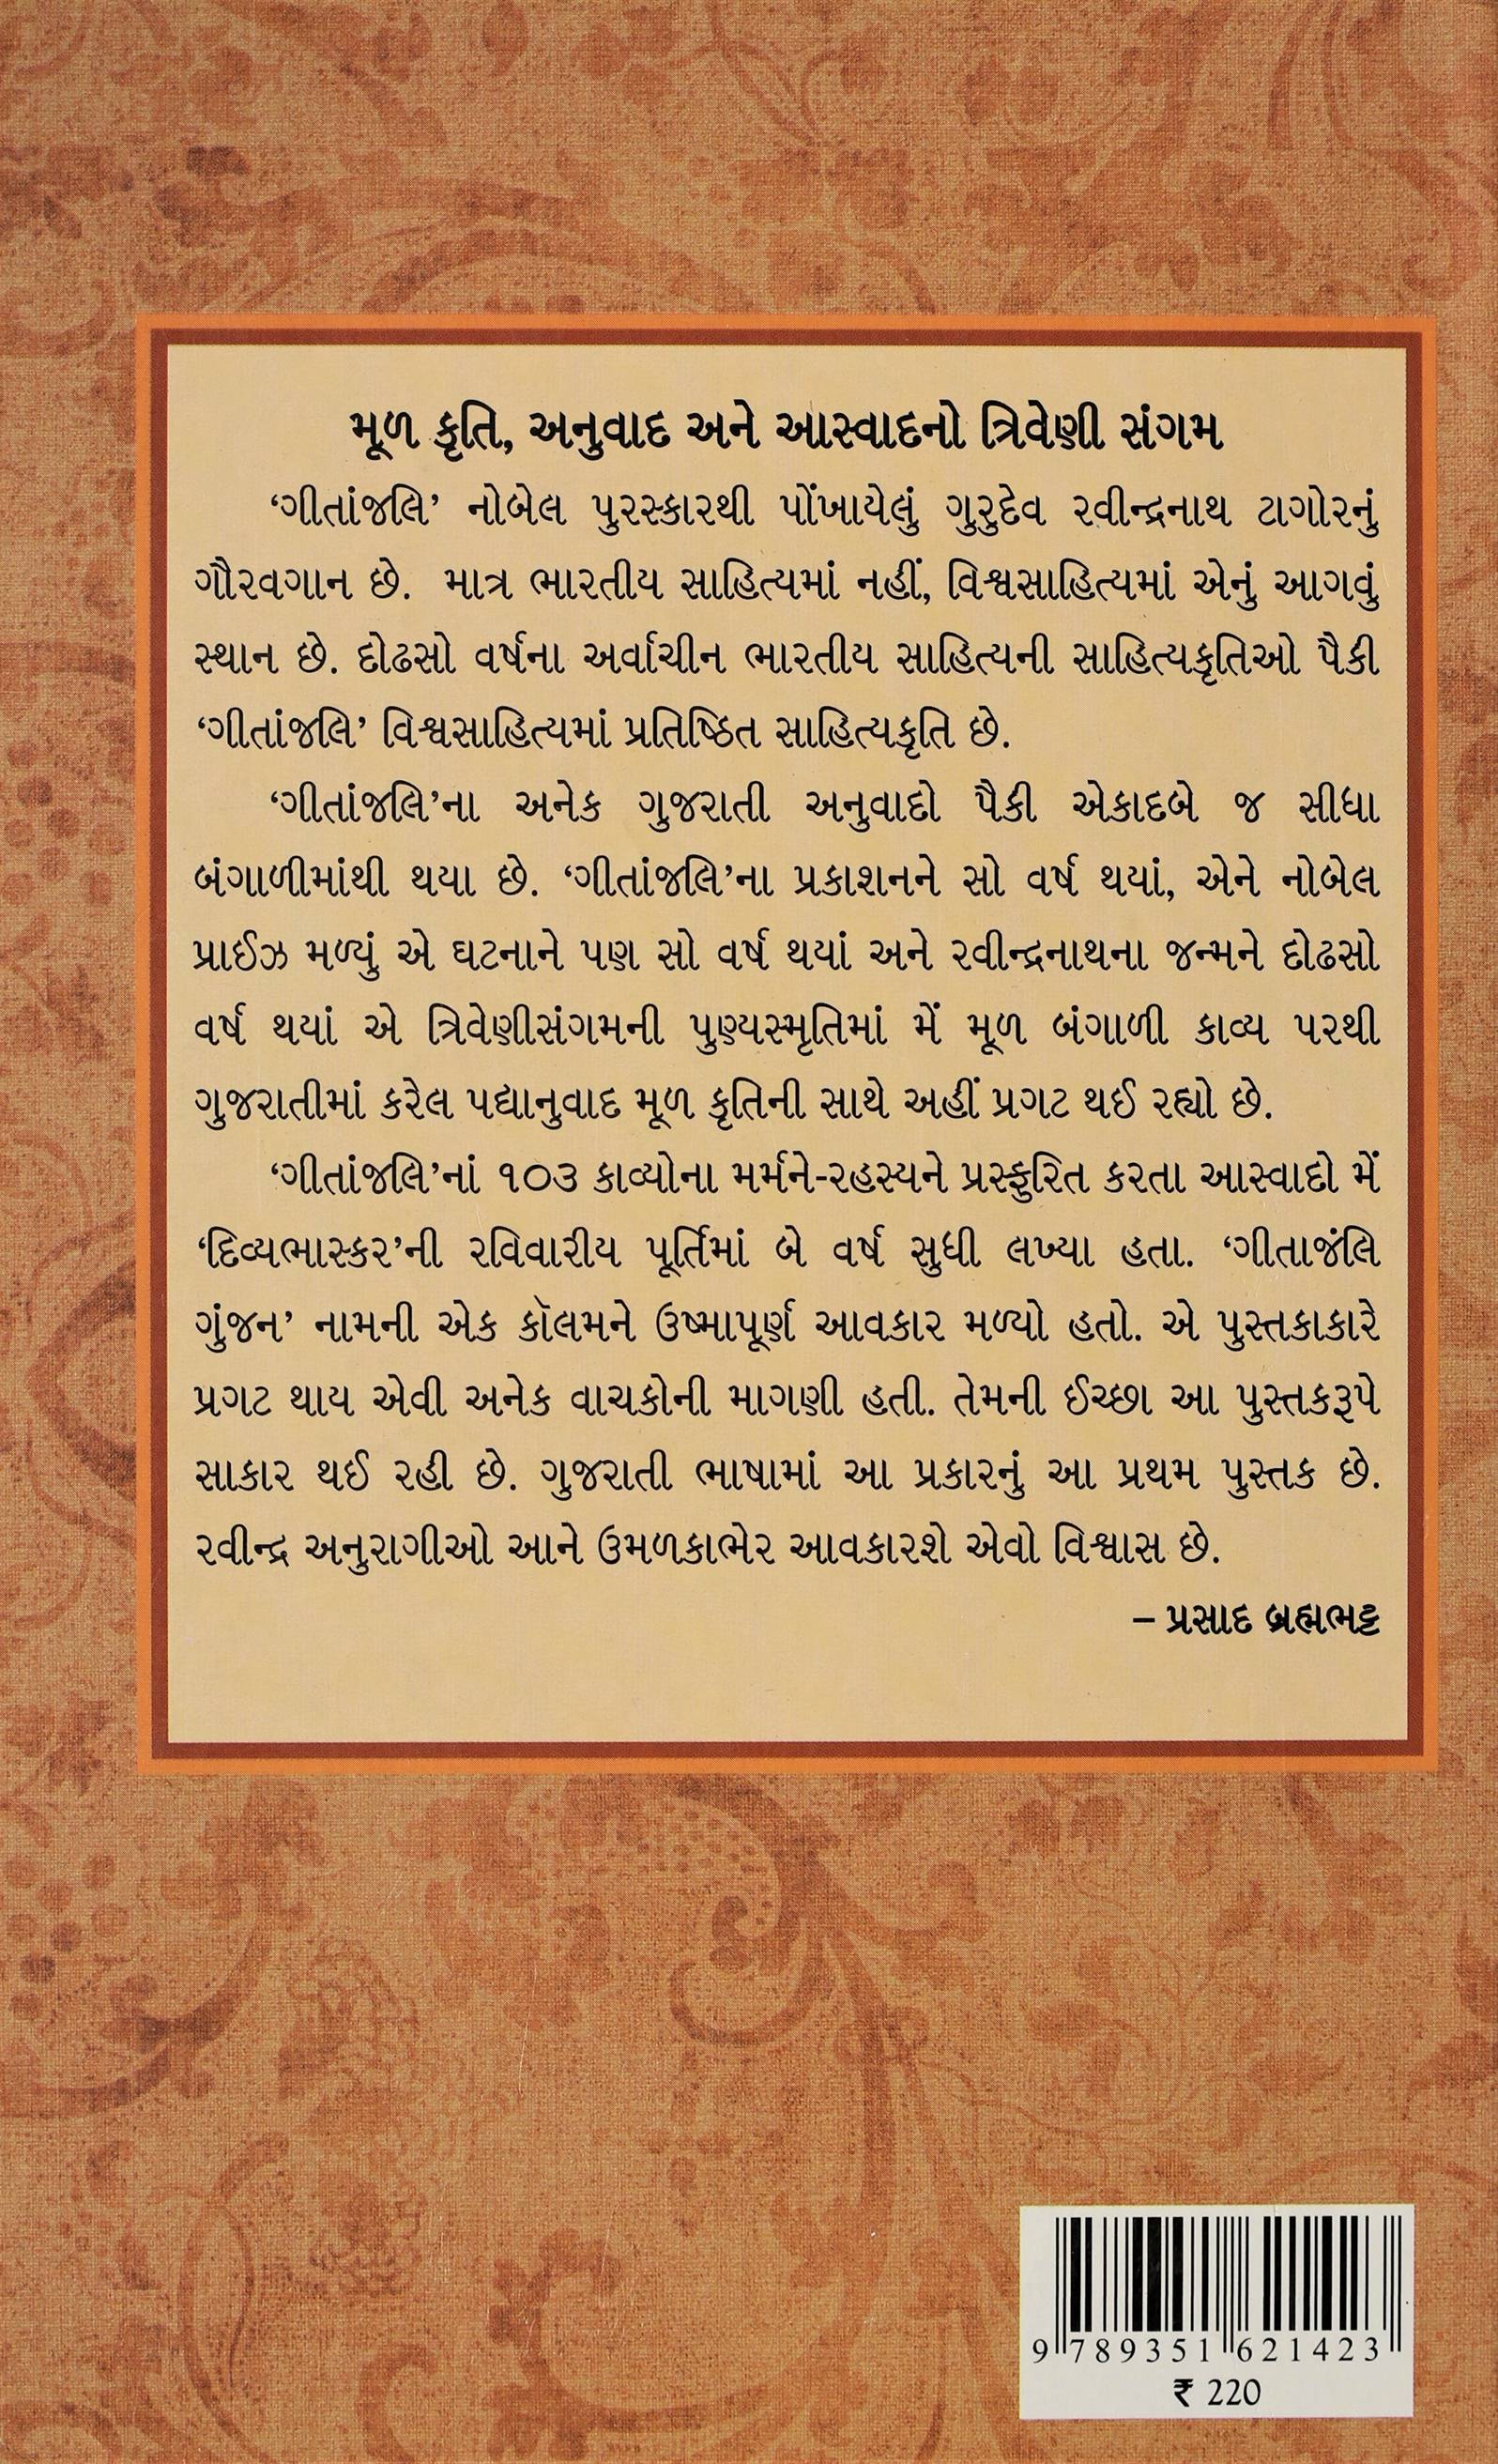 મૂળ કૃતિ, અનુવાદ અને આસ્વાદનો ત્રિવેણી સંગમ
‘ગીતાંજલિ’ નોબેલ પુરસ્કારથી પોંખાયેલું ગુરુદેવ રવીન્દ્રનાથ ટાગોરનું
ગૌરવગાન છે. માત્ર ભારતીય સાહિત્યમાં નહીં, વિશ્વસાહિત્યમાં એનું આગવું
સ્થાન છે. દોઢસો વર્ષના અર્વાચીન ભારતીય સાહિત્યની સાહિત્યકૃતિઓ પૈકી
‘ગીતાંજલિ’ વિશ્વસાહિત્યમાં પ્રતિષ્ઠિત સાહિત્યકૃતિ છે.
‘ગીતાંજલિ’ના અનેક ગુજરાતી અનુવાદો પૈકી એકાદબે જ સીધા
બંગાળીમાંથી થયા છે. ‘ગીતાંજલિ’ના પ્રકાશનને સો વર્ષ થયાં, એને નોબેલ
પ્રાઈઝ મળ્યું એ ઘટનાને પણ સો વર્ષ થયાં અને રવીન્દ્રનાથના જન્મને દોઢસો
વર્ષ થયાં એ ત્રિવેણીસંગમની પુણ્યસ્મૃતિમાં મેં મૂળ બંગાળી કાવ્ય પરથી
ગુજરાતીમાં કરેલ પદ્યાનુવાદ મૂળ કૃતિની સાથે અહીં પ્રગટ થઈ રહ્યો છે.
‘ગીતાંજલિ’નાં ૧૦૩ કાવ્યોના મર્મને-રહસ્યને પ્રસ્ફુરિત કરતા આસ્વાદો મેં
‘દિવ્યભાસ્કર’ની રવિવારીય પૂર્તિમાં બે વર્ષ સુધી લખ્યા હતા. ‘ગીતાજંલિ
ગુંજન’ નામની એક કૉલમને ઉષ્માપૂર્ણ આવકાર મળ્યો હતો. એ પુસ્તકાકારે
પ્રગટ થાય એવી અનેક વાચકોની માગણી હતી. તેમની ઈચ્છા આ પુસ્તકરૂપે
સાકાર થઈ રહી છે. ગુજરાતી ભાષામાં આ પ્રકારનું આ પ્રથમ પુસ્તક છે.
રવીન્દ્ર અનુરાગીઓ આને ઉમળકાભેર આવકારશે એવો વિશ્વાસ છે.
– પ્રસાદ બ્રહ્મભટ્ટ
9 789351 621423
₹ 220